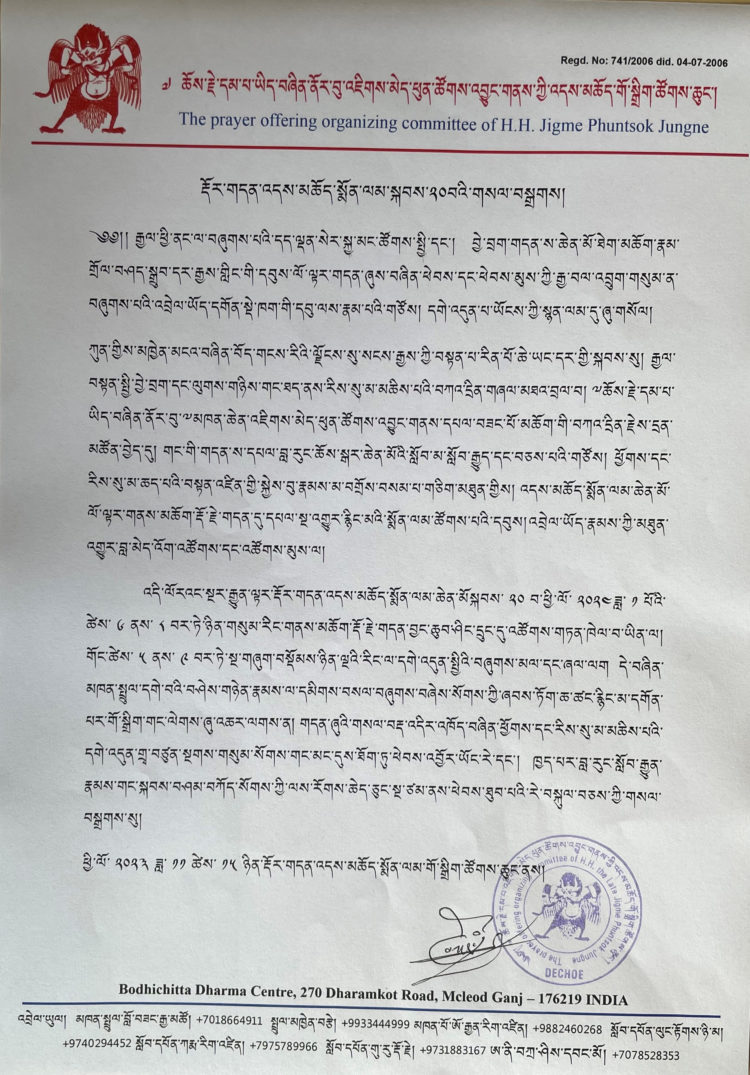 Regd. No: 741/2006 did. 04-07-2006
༡ ཆོས་རྗེ་དམ་པ་ཡིད་བཞིན་ནོར་བུ་འཇིགས་མེད་ཕུན་ཚོགས་འབྱུང་གནས་ཀྱི་འདས་མཆོད་གོ་སྒྲིག་ཚོགས་ཆུང་།
The prayer offering organizing committee of H.H. Jigme Phuntsok Jungne
རྡོར་གདན་འདས་མཆོད་སྨོན་ལམ་སྐབས་༢༠བའི་གསལ་བསྒྲགས།
༄༅།། རྒྱལ་ཕྱི་ནང་ལ་བཞུགས་པའི་དད་ལྡན་སེར་སྐྱ་མང་ཚོགས་སྤྱི་དང་། བྱེ་བྲག་གདན་ས་ཆེན་མོ་ཐེག་མཆོག་རྣམ་
གྲོལ་བཤད་སྒྲུབ་དར་རྒྱས་གླིང་གི་དབུས་ལོ་ལྟར་གདན་ཞུས་བཞིན་ཕེབས་དང་ཕེབས་མུས་ཀྱི་རྒྱ་བལ་འབྲུག་གསུམ་ན་
བཞུགས་པའི་འབྲེལ་ཡོད་དགོན་སྡེ་ཁག་གི་དབུ་ལས་རྣམ་པའི་གཙོས། དགེ་འདུན་པ་ཡོངས་ཀྱི་སྙན་ལམ་དུ་ཞུ་གསོལ།
ཀུན་གྱིས་མཁྱེན་མངའ་བཞིན་བོད་གངས་རིའི་ལྗོངས་སུ་སངས་རྒྱས་ཀྱི་བསྟན་པ་རིན་པོ་ཆེ་ཡང་དར་གྱི་སྐབས་སུ། རྒྱལ་
བསྟན་སྤྱི་བྱེ་བྲག་དང་ལུགས་གཉིས་གང་ཐད་ནས་རིས་སུ་མ་མཆིས་པའི་བཀའ་དྲིན་གཞལ་མཐའ་བྲལ་བ། ༧ཆོས་རྗེ་དམ་པ་
ཡིད་བཞིན་ནོར་བུ་༧མཁན་ཆེན་འཇིགས་མེད་ཕུན་ཚོགས་འབྱུང་གནས་དཔལ་བཟང་པོ་མཆོག་གི་བཀའ་དྲིན་རྗེས་དྲན་
མཚོན་བྱེད་དུ། གང་གི་གདན་ས་དཔལ་བླ་རུང་ཆོས་སྒར་ཆེན་མོའི་སློབ་མ་སློབ་རྒྱུད་དང་བཅས་པའི་གཙོས། ཕྱོགས་དང་
རིས་སུ་མ་ཆད་པའི་བསྟན་འཛིན་གྱི་སྐྱེས་བུ་རྣམས་མ་བགྲོས་བསམ་པ་གཅིག་མཐུན་གྱིས། འདས་མཆོད་སྨོན་ལམ་ཆེན་མོ་
ལོ་ལྟར་གནས་མཆོག་རྡོ་རྗེ་གདན་དུ་དཔལ་སྔ་འགྱུར་རྙིང་མའི་སྨོན་ལམ་ཚོགས་པའི་དབུས། འབྲེལ་ཡོད་རྣམས་ཀྱི་མཐུན་
འགྱུར་བླ་མེད་འོག་འཚོགས་དང་འཚོགས་མུས་ལ།
འདི་ལོརའང་སྔར་རྒྱུན་ལྟར་རྡོར་གདན་འདས་མཆོད་སྨོན་ལམ་ཆེན་མོ་སྐབས་ ༢༠ བ་ཕྱི་ལོ་ ༢༠༢༤ ཟླ་ ༡ པོའི་
ཚེས་ ༦ ནས་ ༨ བར་ཏེ་ཉིན་གསུམ་རིང་གནས་མཆོག་རྡོ་རྗེ་གདན་བྱང་ཆུབ་ཤིང་དྲུང་དུ་འཚོགས་གཏན་ཁེལ་བ་ཡིན་ལ།
གོང་ཚེས་ ༥ ནས་ ༩ བར་ཏེ་སྔ་གཞུག་བསྡོམས་ཉིན་ལྔའི་རིང་ལ་དགེ་འདུན་སྤྱིའི་བཞུགས་མལ་དང་ཞལ་ལག དེ་བཞིན་
མཁན་སྤྲུལ་དགེ་བའི་བཤེས་གཉེན་རྣམས་ལ་དམིགས་བསལ་བཞུགས་བཞེས་སོགས་ཀྱི་ཞབས་ཏོག་ཆ་ཚང་རྙིང་མ་དགོན་
པར་གོ་སྒྲིག་གང་ལེགས་ཞུ་འཆར་ལགས་ན། གདན་ཞུའི་གསལ་བརྡ་འདིར་འཁོད་བཞིན་ཕྱོགས་དང་རིས་སུ་མ་མཆིས་པའི་
དགེ་འདུན་གྲྭ་བཙུན་སྔགས་གསུམ་སོགས་གང་མང་དུས་ཐོག་ཏུ་ཕེབས་འབྱོར་ཡོང་རེ་དང་། ཁྱད་པར་བླ་རུང་སློབ་རྒྱུན་
རྣམས་གང་སྐབས་བཤམ་བཀོད་སོགས་ཀྱི་ལས་རོགས་ཆེད་ཅུང་སྔ་ཙམ་ནས་ཕེབས་ཐུབ་པའི་རེ་བསྐུལ་བཅས་ཀྱི་གསལ་
བསྒྲགས་སུ།
ཕྱི་ལོ་ ༢༠༢༣ ཟླ་ ༡༡ ཚེས་ ༡༥ ཉིན་རྡོར་གདན་འདས་མཆོད་སྨོན་ལམ་གོ་སྒྲིག་ཚོགས་ཆུང་ནས།
The prayer offering organizing committee of H.H. the Late Jigme Phuntsok Jungne
DECHOE
Bodhichitta Dharma Centre, 270 Dharamkot Road, Mcleod Ganj – 176219 INDIA
འབྲེལ་ཡུལ། མཁན་སྤྲུལ་བློ་བཟང་རྒྱ་མཚོ། +7018664911 སྤྲུལ་མཁྱེན་བརྩེ། +9933444999 མཁན་པོ་ཨོ་རྒྱན་རིག་འཛིན། +9882460268 སློབ་དཔོན་ལུང་རྟོགས་ཉི་མ།
+9740294452 སློབ་དཔོན་ཀརྨ་རིག་འཛིན། +7975789966 སློབ་དཔོན་གུ་རུ་རྡོ་རྗེ། +9731883167 ཨ་ནི་བཀྲ་ཤིས་དབང་མོ། +7078528353